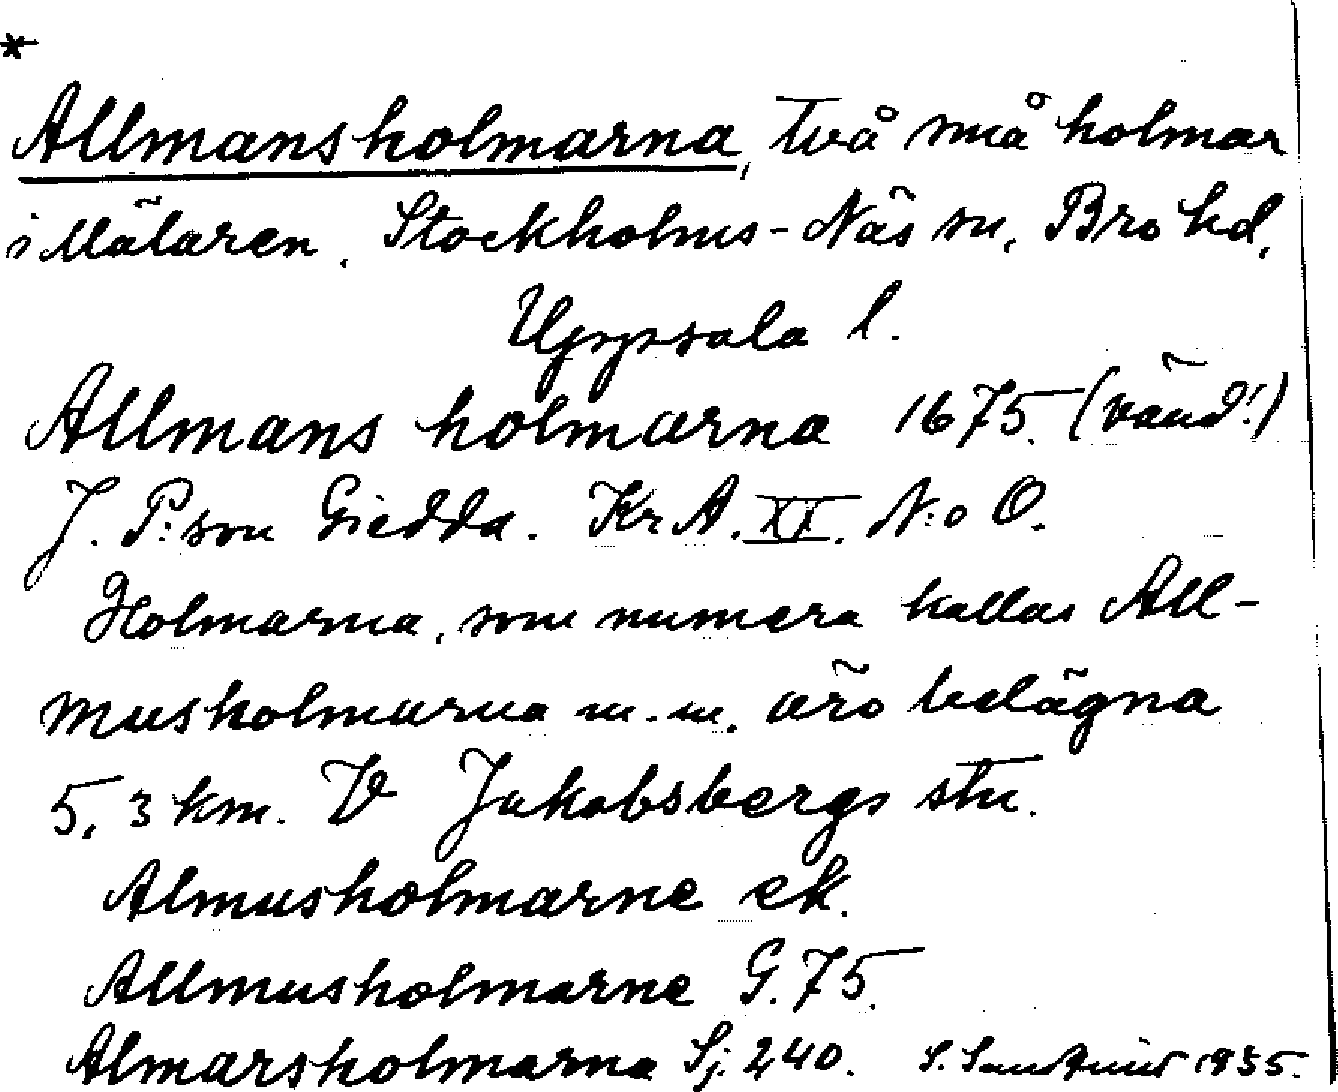 *
Allmansholmarna, två små holmar
i Mälaren. Stockholms-Näs sn, Bro hd,
Uppsala l.
Allmans holmarna 1675. (vänd!)
J. P:son Giedda. Kr A. XI. N:o O.
Holmarna, som numera kallas All-
musholmarna m.m. äro belägna
5,3 km. V Jakobsbergs stn.
Almusholmarne ek.
Allmusholmarne G. 75.
Almarsholmarna Sj. 240. S. 1935.